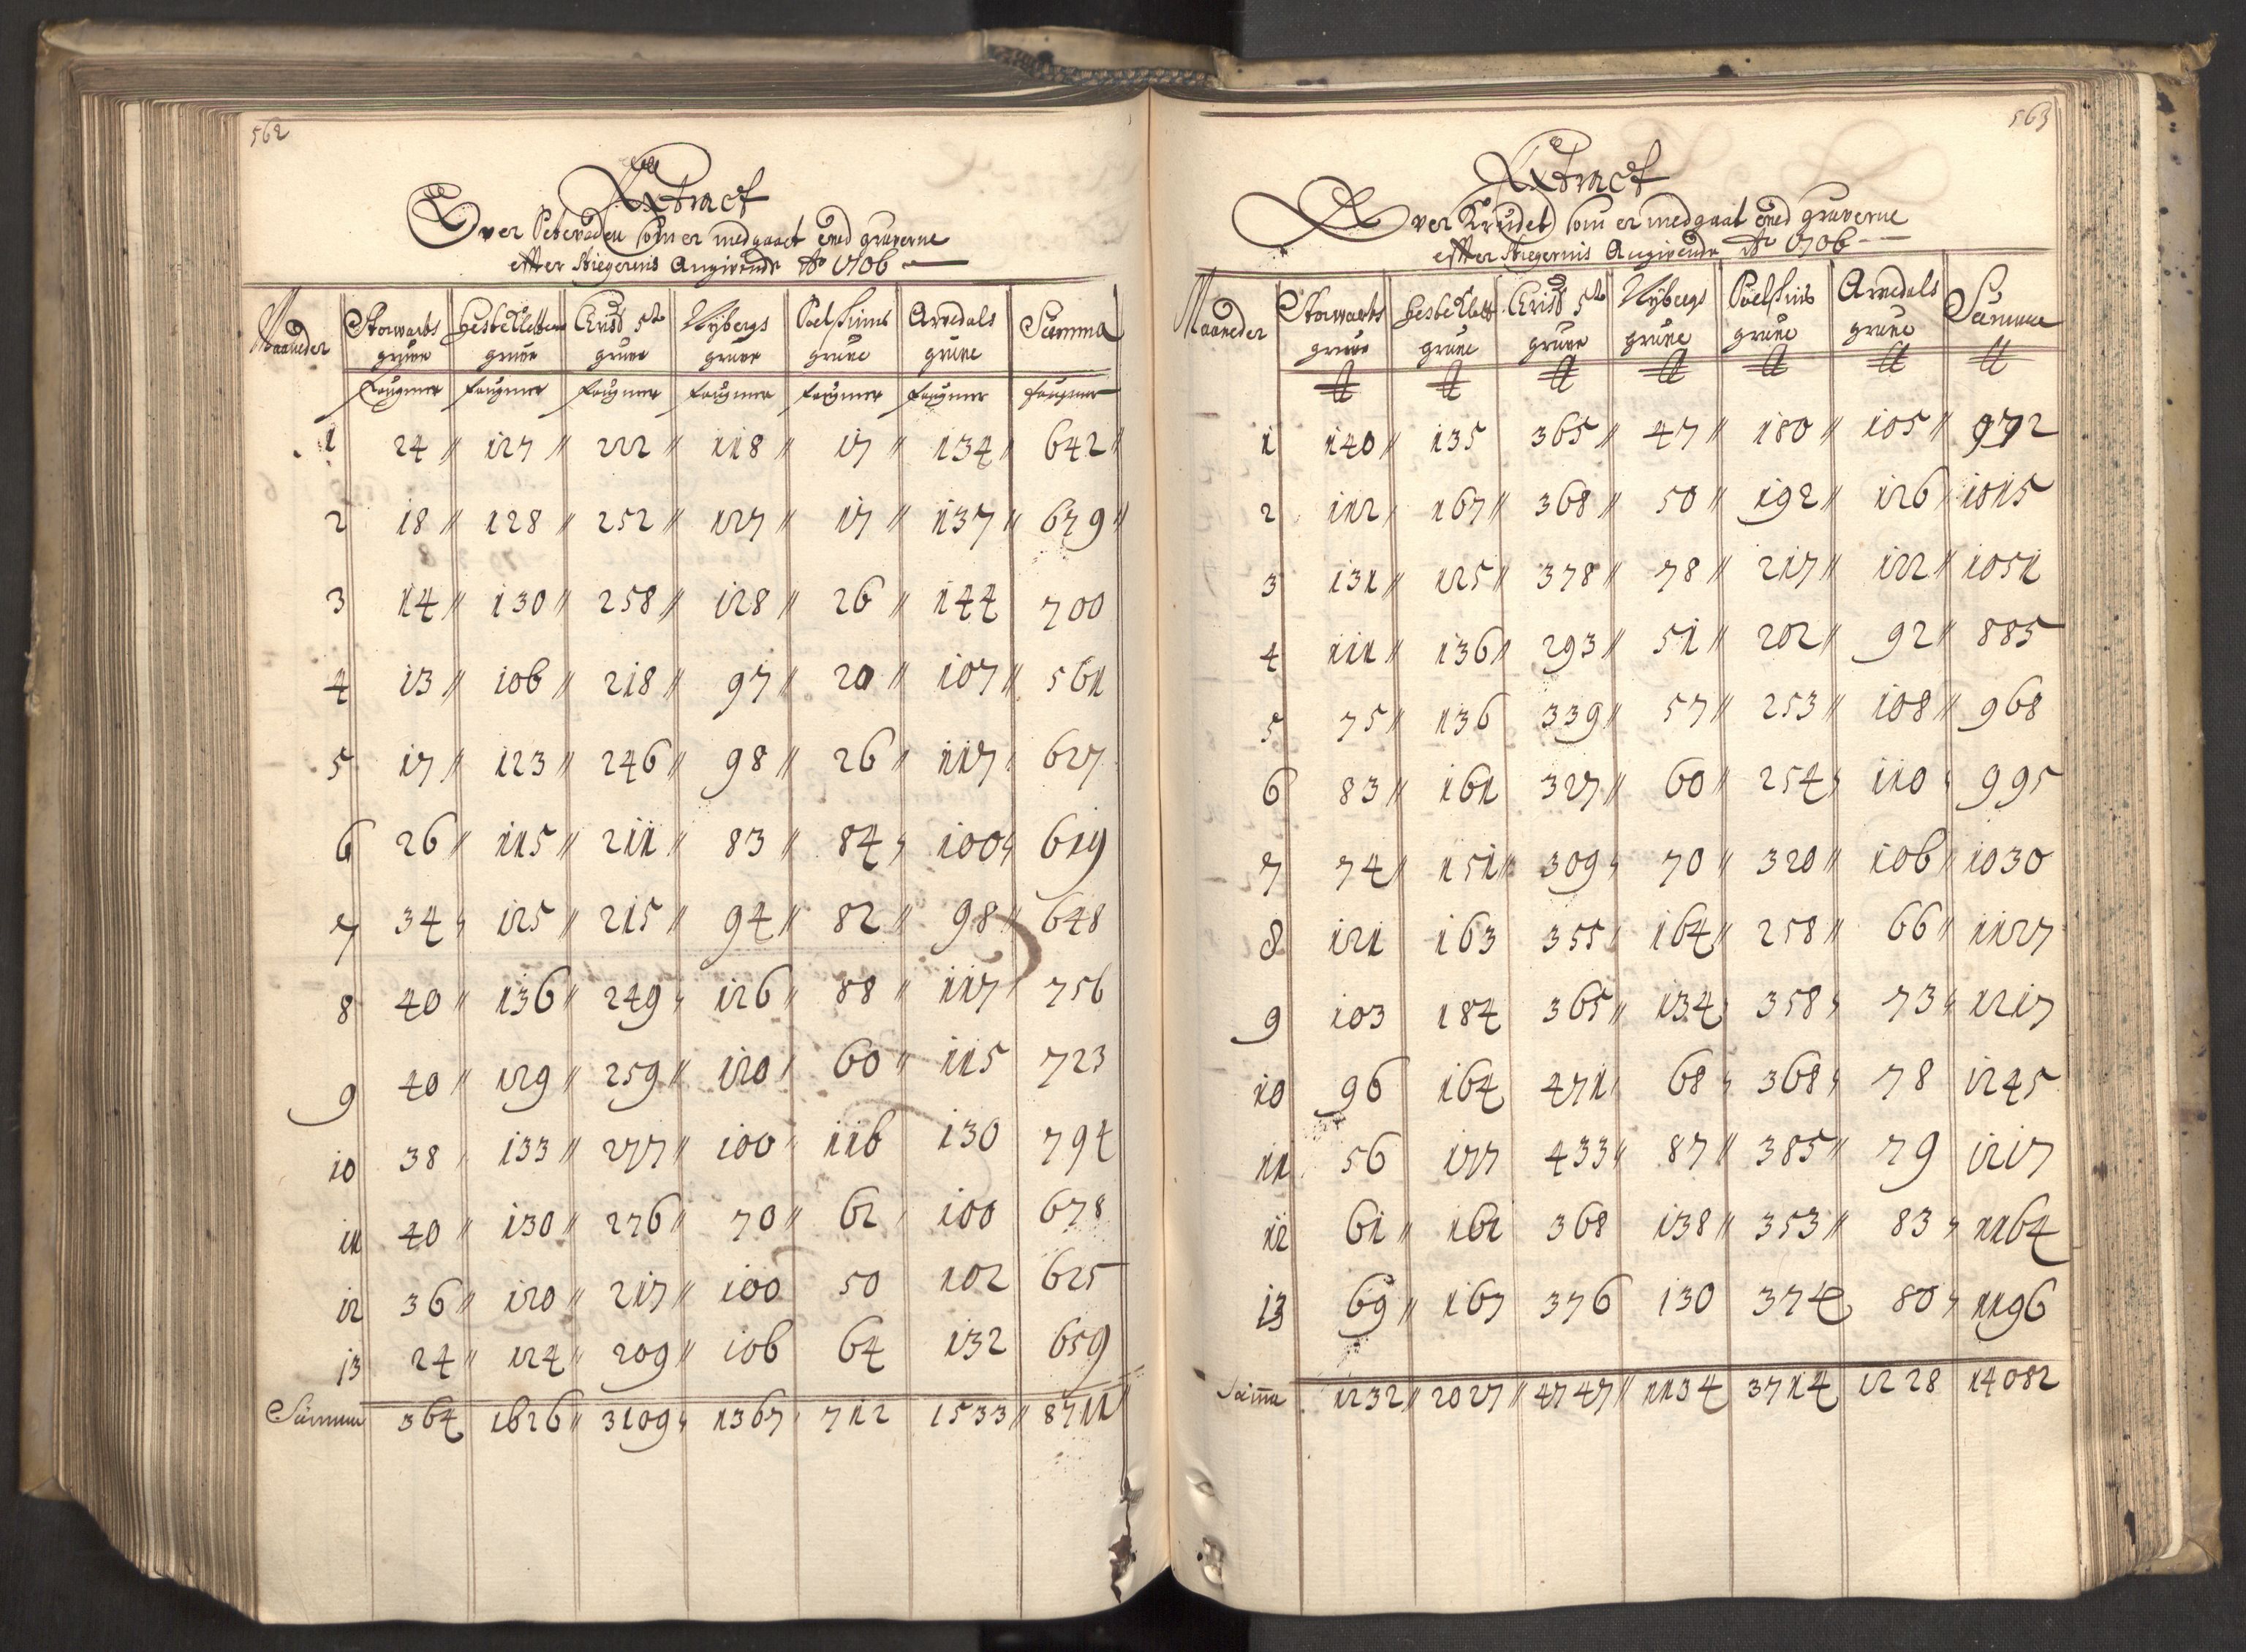 562
Extract
Over Seteveden som er medgaaet ved gruverne
effter Stiegernis Angivende Ao 1706
Maaneder Storwarts gruve Gesbekletten gruve Christ 5te gruve Nybergs gruve gruve Arvedals gruve Summa
faugner faugner faugner faugner faugner faugner faugner
1 24 127 222 118 17 134 642
2 18 128 252 127 17 137 679
3 14 130 258 128 26 144 700
4 13 106 218 97 20 107 561
5 17 123 246 98 26 117 627
6 26 115 211 83 84 100 619
7 34 125 215 94 82 98 648
8 40 136 249 126 88 117 756
9 40 129 259 120 60 115 723
10 38 133 277 100 116 130 794
11 40 130 276 70 62 100 678
12 36 120 217 100 50 102 625
13 24 124 209 106 64 132 659
Summa 364 1626 3109 1367 712 1533 8711
563
Extract
Over Krudet som er medgaat ved gruverne
effter Stiegernis Angivende Ao 1706
Maaneder Storwarts gruve gruve Christ 5te gruve Nybergs gruve gruve Arvedals gruve Summa
1 140 135 365 47 180 105 972
2 112 167 368 50 192 126 1015
3 131 125 378 78 217 122 1051
4 111 136 293 51 202 92 885
5 75 136 339 57 253 108 968
6 83 161 327 60 254 110 995
7 74 151 309 70 320 106 1030
8 121 163 355 164 258 66 1127
9 103 184 365 134 358 73 1217
10 96 164 471 68 368 78 1245
11 56 177 433 87 385 79 1217
12 61 161 368 138 353 83 1164
13 69 167 376 130 374 80 1196
Suma 1232 2027 4747 1134 3714 1228 14082